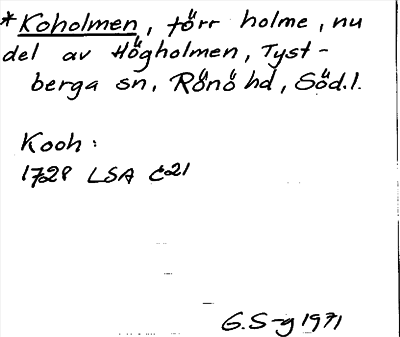 *Koholmen, förr holme, nu
del av Högholmen, Tyst-
berga sn, Rönö hd, Söd.l.
Kooh:
1728 LSA C21
G.S-g 1971